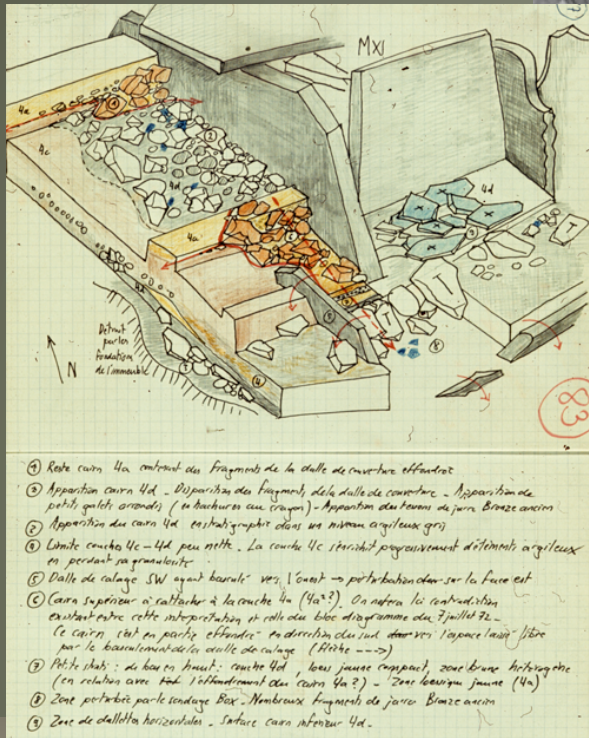 MXI
4a
1
2
4c
4d
4d
3
4a
6
9
5
8
4d
Détruit
par les
fondation
de l'immeuble
N
4
83
① Reste cairn 4a contenant des fragments de la dalle de couverture effondrée
② Apparition cairn 4d - Disparition des fragments de la dalle de couverture - Apparition de
petits galets arrondis (en hachures au crayon) - Apparition du tessons de jarre Bronze ancien
Apparition du cairn 4d en stratigraphie dans un niveau argileux gris
④ Limite couches 4c - 4d peu nette. La couche 4c s'enrichit progressivement d'éléments argileux
en perdant sa granulosité
⑤ Dalle de calage SW ayant basculé vers l'ouest → perturbation sur la face est
⑥ Cairn supérieur à rattacher à la couche 4a (4a²?). On notera la contradiction
existant entre cette interprétation et celle du bloc diagramme du 7 juillet 72.
Ce cairn s'est en partie effondré en direction du sud vers l'espace laissé libre
par le basculement de la dalle de calage (flèche --->)
⑦ Petite strati : du bas en haut : couche 4d, loess jaune compact, zone brune hétérogène
(en relation avec l'effondrement du cairn 4a?) - Zone loessique jaune (4a)
⑧ Zone perturbée par le sondage Box. Nombreux fragments de jarre Bronze ancien
⑨ Zone de dallettes horizontales - Surface cairn inférieur 4d.